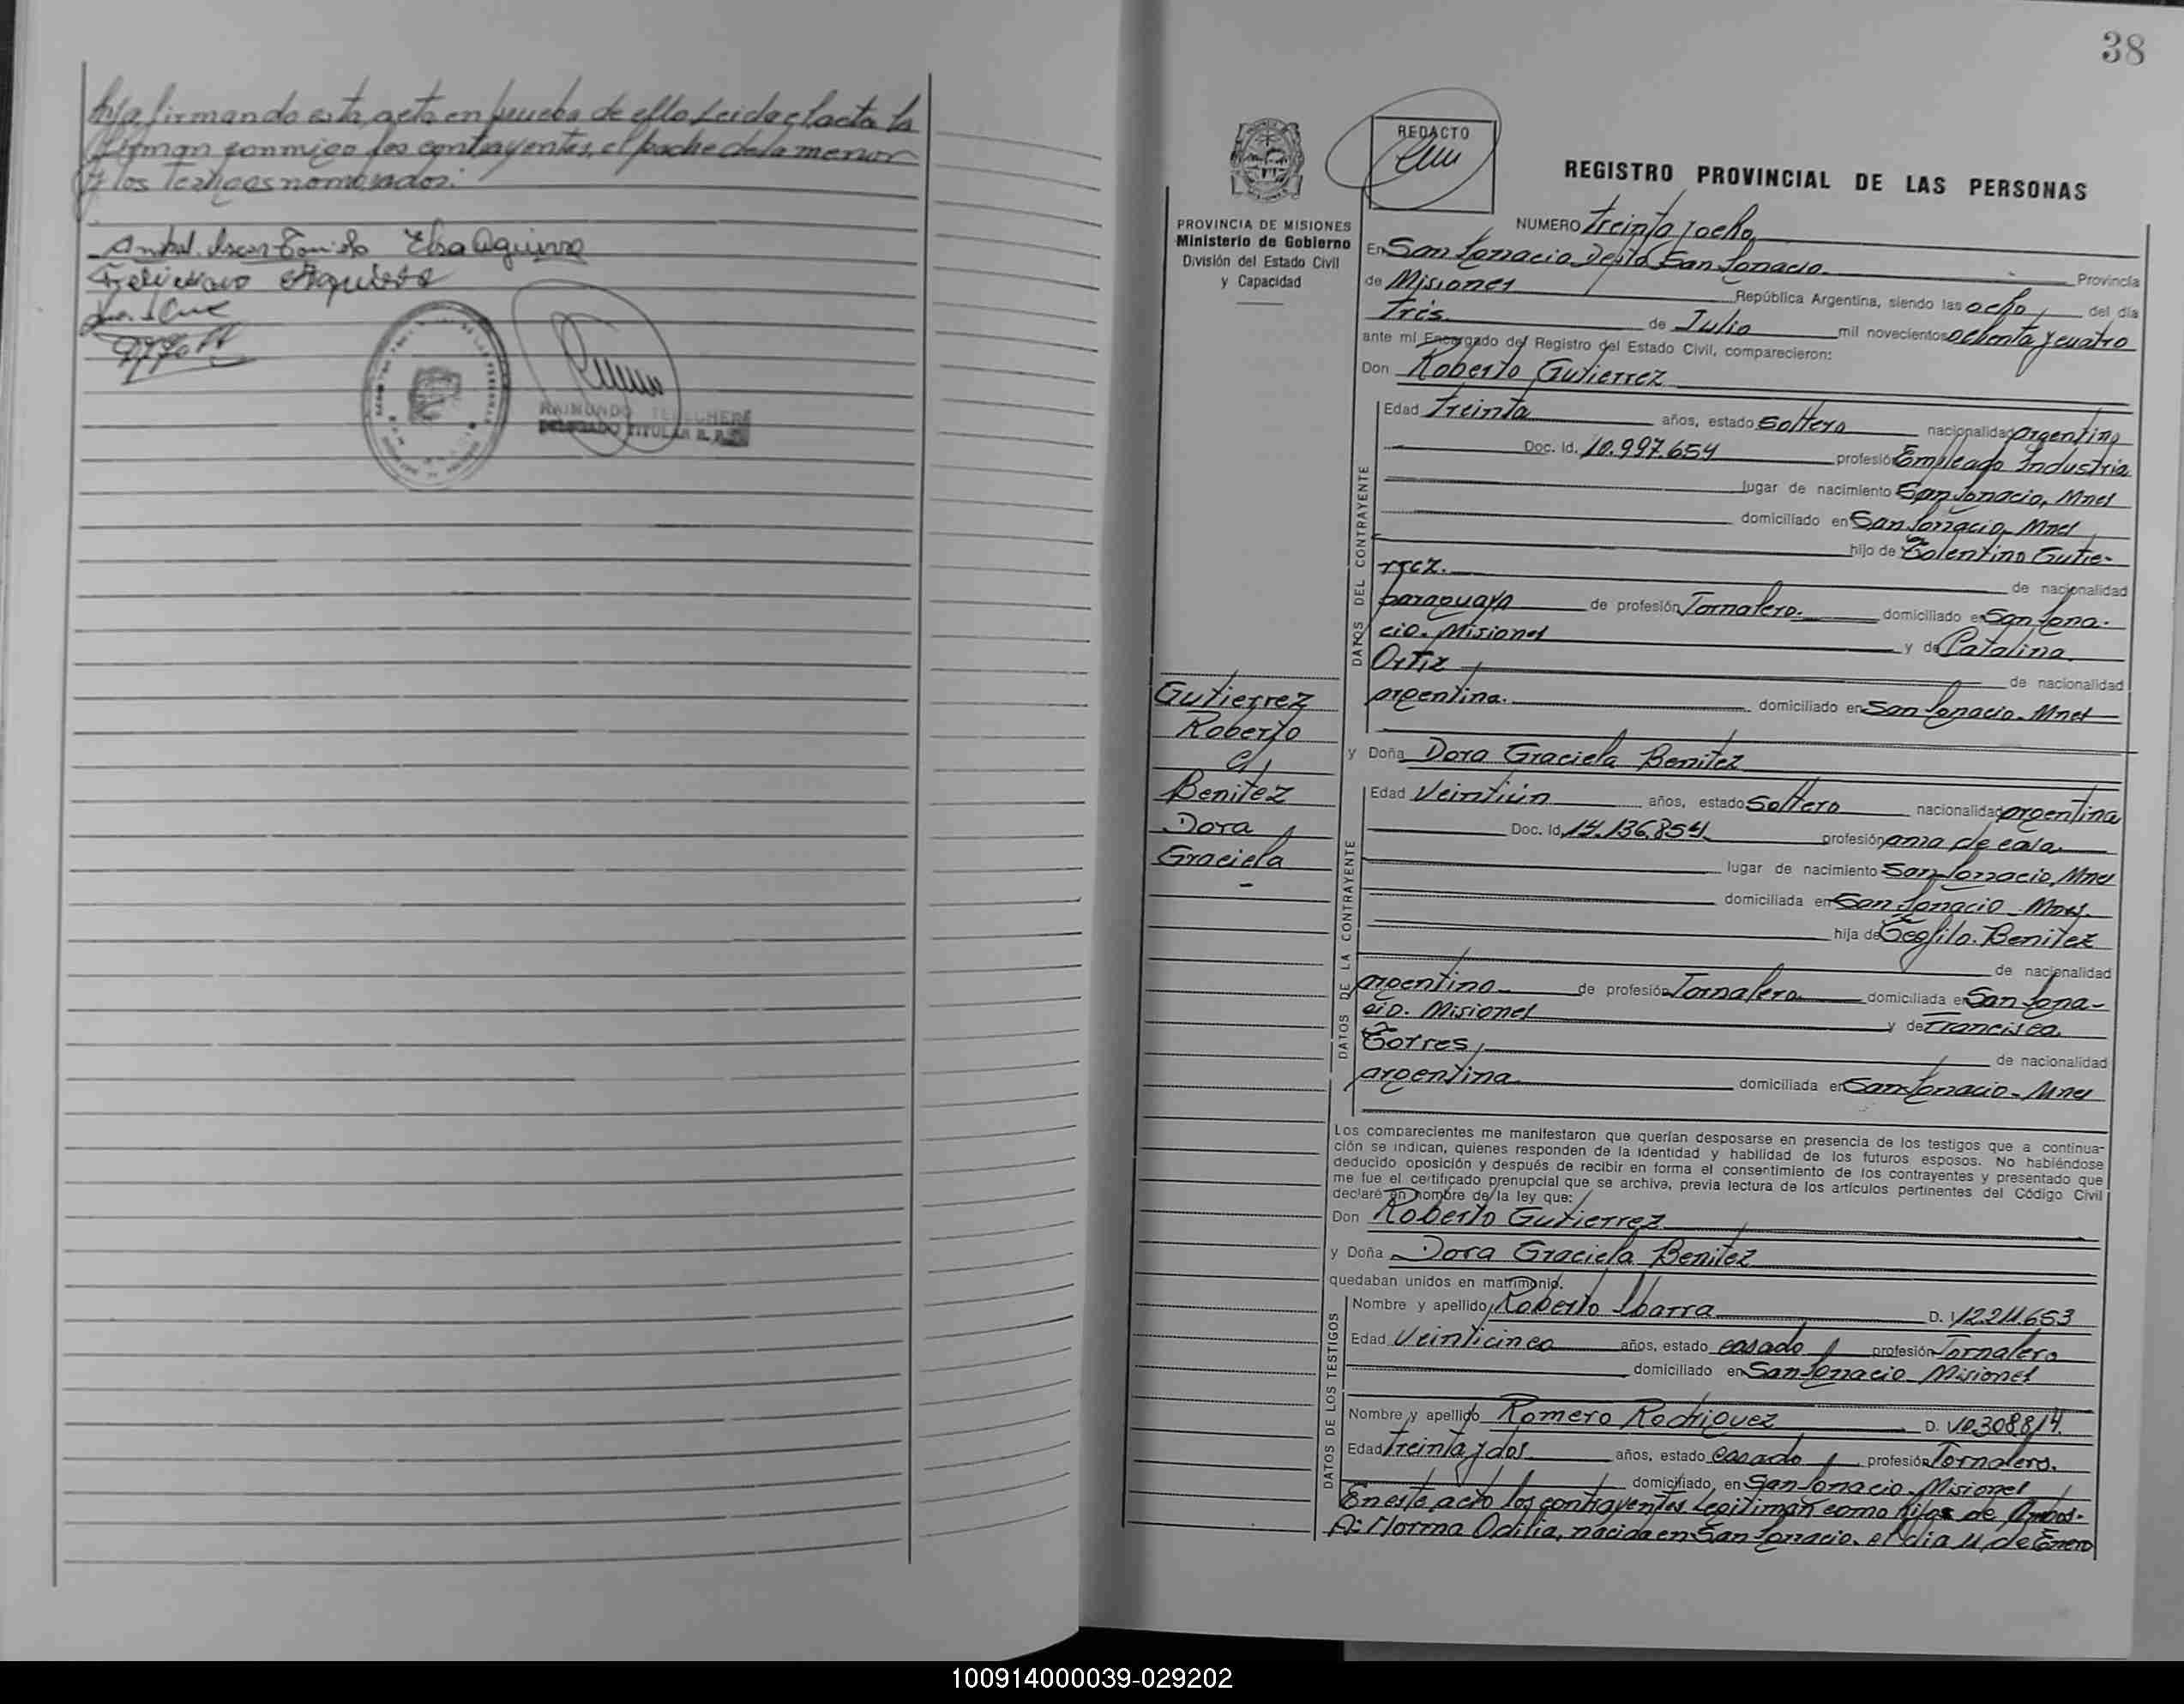 hija firmando esta acta en prueba de ello Leida el acta la
firman conmigo los contrayentes, el padre de la menor
y los Testigos nombrados:
Elsa Aguirre
Feliciano Aguirre
RAIMUNDO
DELEGADO TITULAR R. P.
38
REDACTO
REGISTRO PROVINCIAL DE LAS PERSONAS
PROVINCIA DE MISIONES
Ministerio de Gobierno
División del Estado Civil
y Capacidad
NUMERO treinta y ocho
En San Ignacio Depto San Ignacio Provincia
de Misiones República Argentina, siendo las ocho, del día
Tres de Julio mil novecientos ochenta y cuatro
ante mi Encargado del Registro del Estado Civil, comparecieron:
Don Roberto Gutierrez
DATOS DEL CONTRAYENTE
Edad treinta años, estado soltero nacionalidad argentino
Doc. Id. 10.997.654 profesión Empleado Industria
lugar de nacimiento San Ignacio, Mnes
domiciliado en San Ignacio, Mnes
hijo de Tolentino Gutie-
rrez. de nacionalidad
paraguaya de profesión Jornalero. domiciliado en San Igna-
cio. Misiones y de Catalina
Ortiz de nacionalidad
argentina. domiciliado en San Ignacio. Mnes
Gutierrez
Roberto
c/
Benitez
Dora
Graciela
-
y Doña Dora Graciela Benitez
DATOS DE LA CONTRAYENTE
Edad Veintiún años, estado soltera nacionalidad argentina
Doc. Id. 14.136.854 profesión ama de casa.
lugar de nacimiento San Ignacio, Mnes
domiciliada en San Ignacio - Mnes.
hija de Teofilo. Benitez
de nacionalidad
argentino de profesión Jornalero domiciliada en San Igna-
cio. Misiones y de Francisca
Torres, de nacionalidad
argentina domiciliada en San Ignacio - Mnes
Los comparecientes me manifestaron que querían desposarse en presencia de los testigos que a continua-
ción se indican, quienes responden de la identidad y habilidad de los futuros esposos. No habiéndose
deducido oposición y después de recibir en forma el consentimiento de los contrayentes y presentado que
me fue el certificado prenupcial que se archiva, previa lectura de los artículos pertinentes del Código Civil
declaré en nombre de la ley que:
Don Roberto Gutierrez
y Doña Dora Graciela Benitez
quedaban unidos en matrimonio.
DATOS DE LOS TESTIGOS
Nombre y apellido Roberto Ibarra D. I. 12.211.653
Edad Veinticinco años, estado casado profesión Jornalero
domiciliado en San Ignacio - Misiones
Nombre y apellido Romero Rodriguez D. I.
Edad treinta y dos años, estado casado profesión Jornalero.
domiciliado en San Ignacio. Misiones
En este acto los contrayentes Legitiman como hijas de Ambos.
A: Norma Odilia, nacida en San Ignacio. el dia 11 de Enero
100914000039-029202